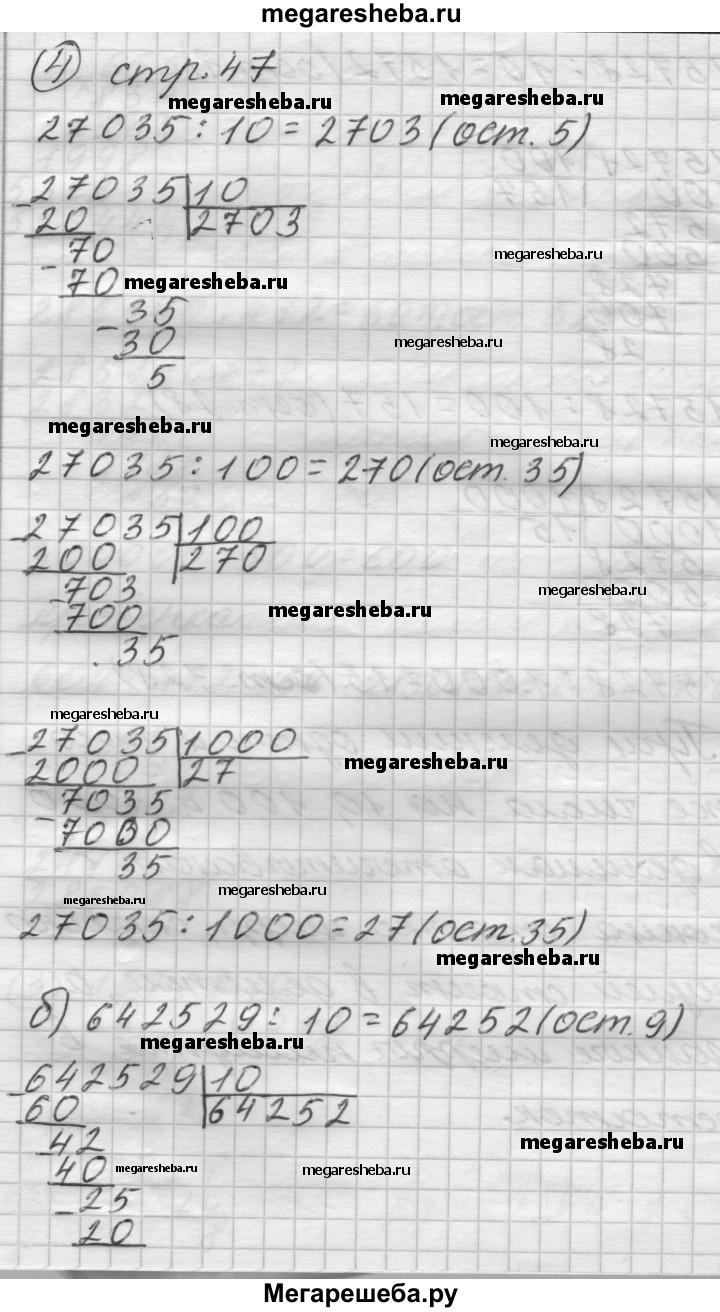 megaresheba.ru
4 стр. 47
megaresheba.ru megaresheba.ru
27035 : 10 = 2703 (ост. 5)
27035 10
20 2703
70 megaresheba.ru
- 70 megaresheba.ru
- 35
30 megaresheba.ru
5
megaresheba.ru
megaresheba.ru
27035 : 100 = 270 (ост. 35)
- 27035 100
200 270
- 703 megaresheba.ru
700 megaresheba.ru
35
megaresheba.ru
- 27035 1000
2000 27 megaresheba.ru
- 7035
7000
35
megaresheba.ru
megaresheba.ru
27035 : 1000 = 27 (ост. 35)
megaresheba.ru
б) 642529 : 10 = 64252 (ост. 9)
megaresheba.ru
- 642529 10
60 64252
- 42 megaresheba.ru
40 megaresheba.ru megaresheba.ru
- 25
20
Мегарешеба.ру